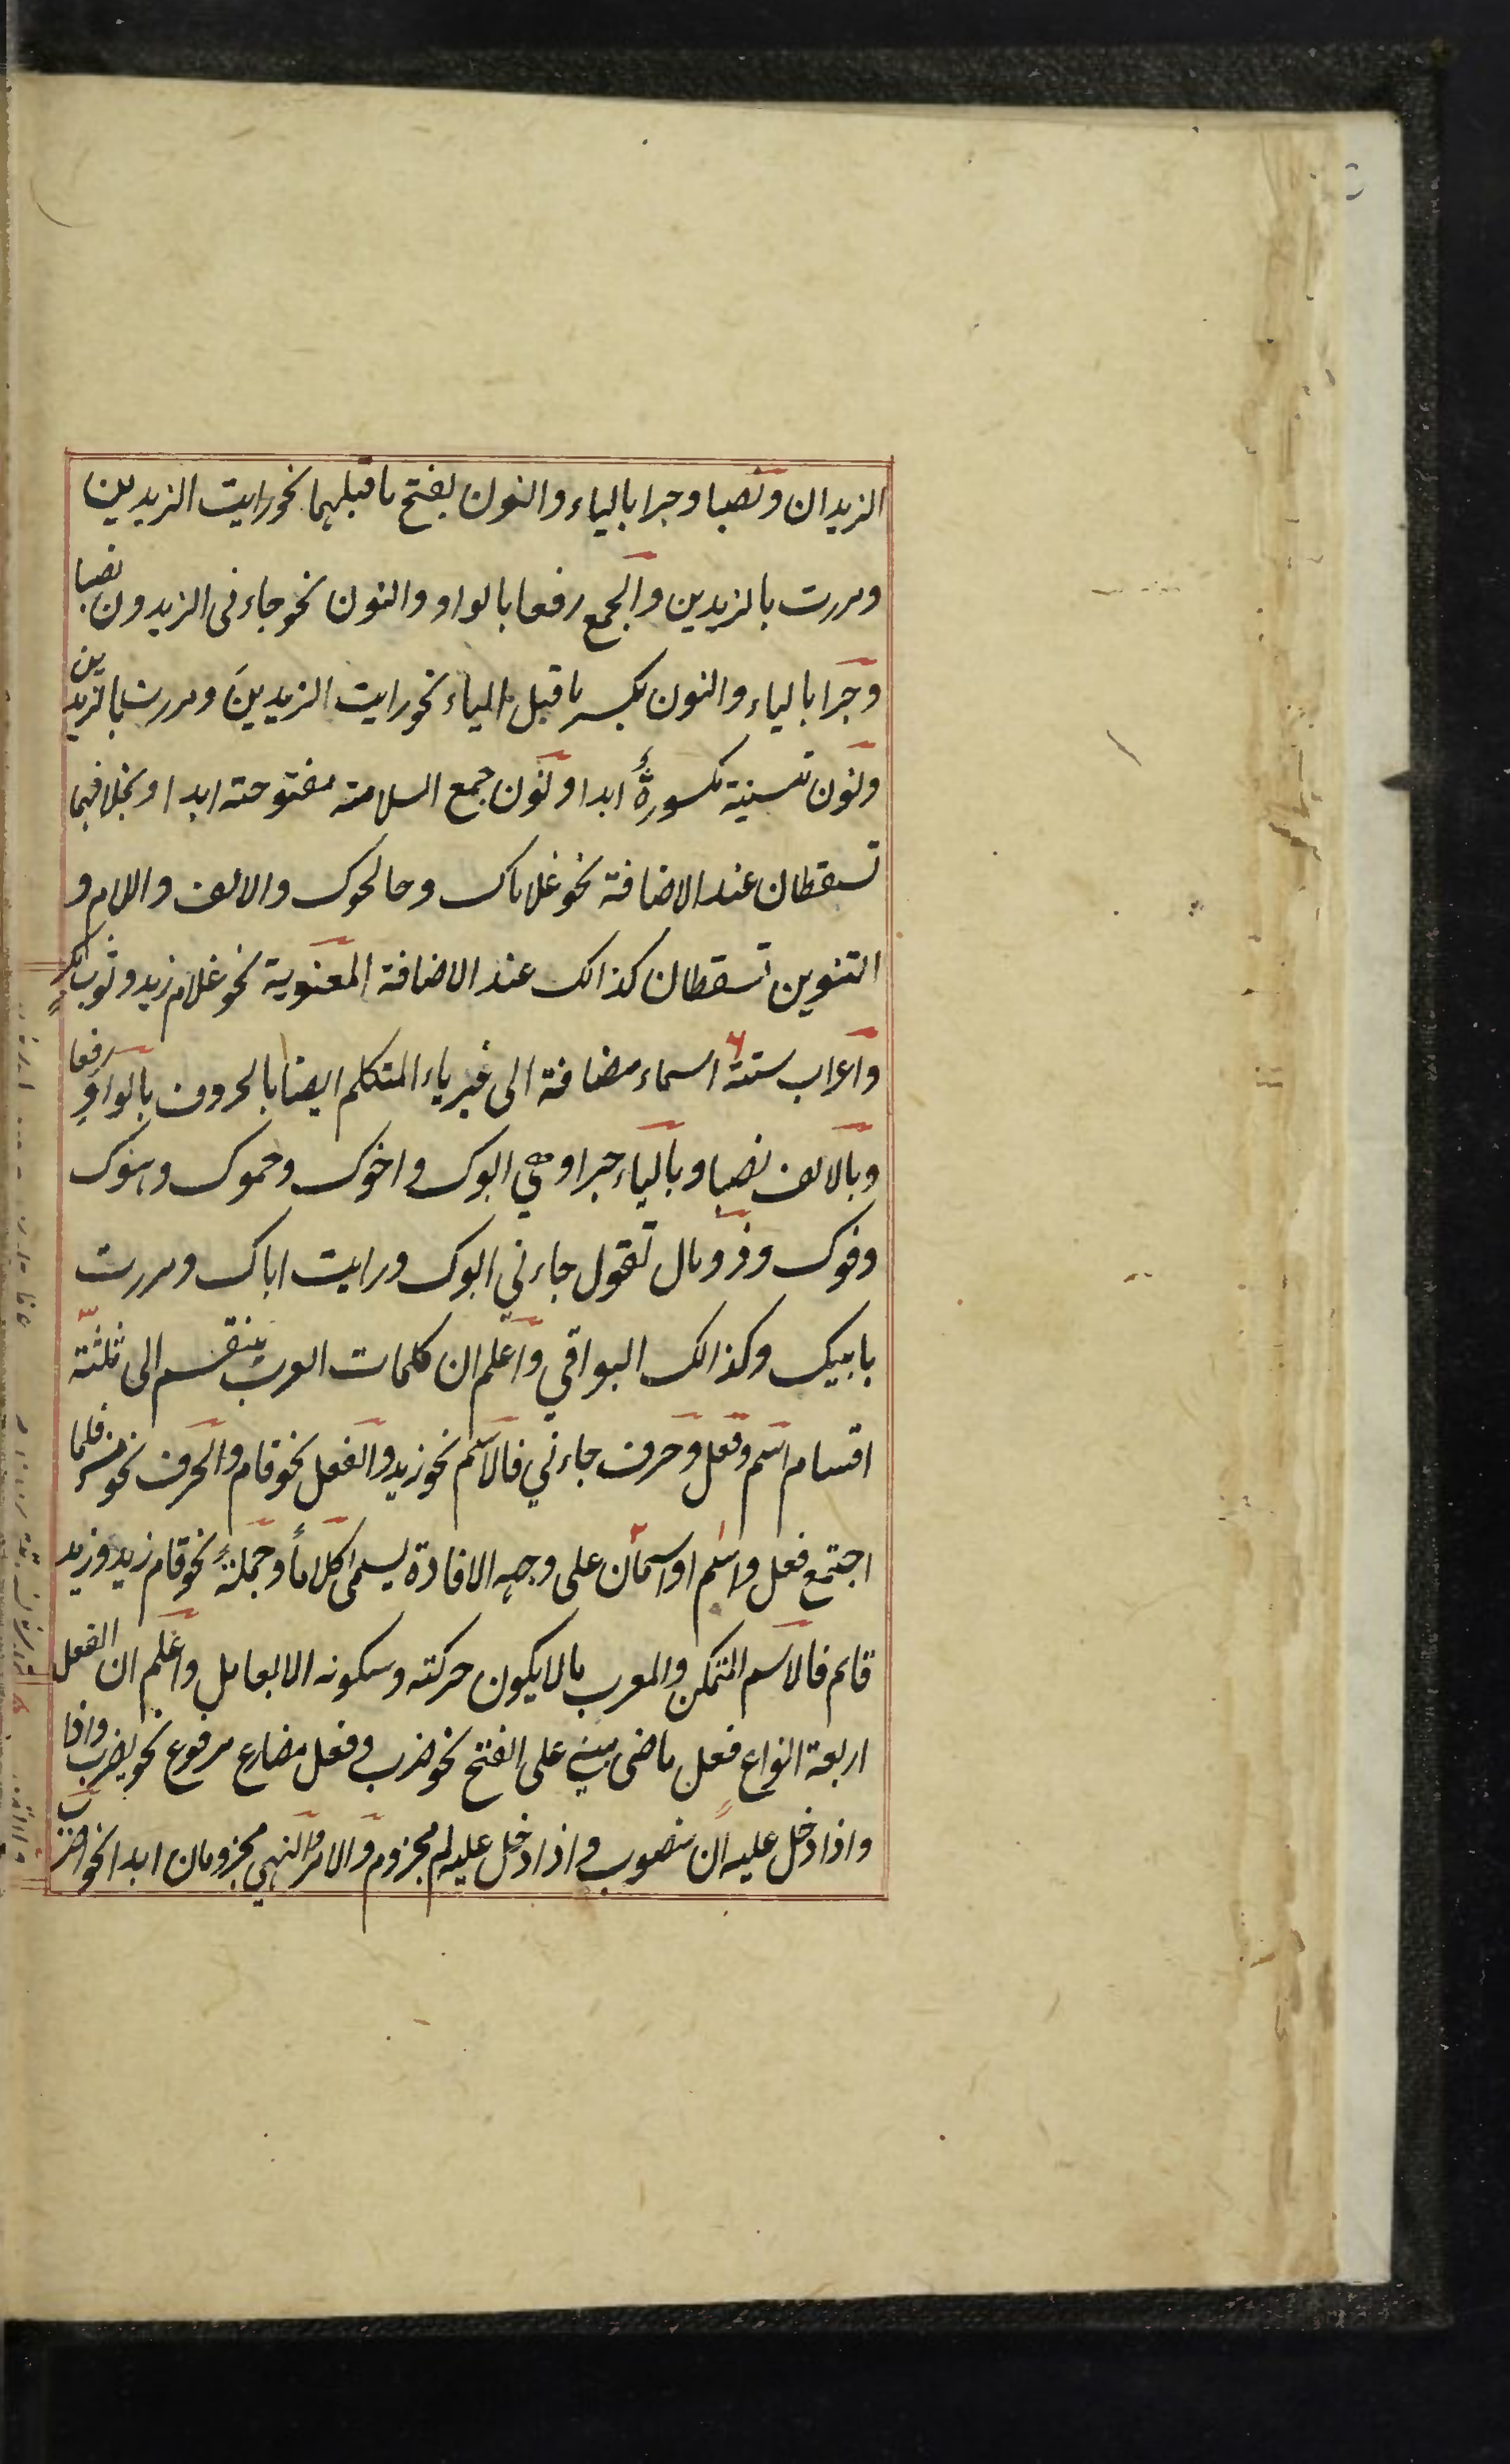 الزيدان ونصبا وجرا بالياء والنون بفتح ماقبلهما نحو رايت الزيدين
ومررت بالزيدين والجمع رفعا بالواو والنون نحو جاءنى الزيدون نصبا
وجرا بالياء والنون بكسر ماقبل الياء نحو رايت الزيدينَ ومررت بالزيدين
ونون تسنية مكسورةٌ ابدا ونون جمع السلامته مفتوحته ابدا وبخلافهما
تسقطان عند الاضافة نحو غلاماك وصالحوك والالف واللام و
التنوين تسقطان كذالك عند الاضافة المعنوية نحو غلام زيد وثوب بكرٍ
واعراب ستته ٦ اسماء مضافة الى غير ياء المتكلم ايضا بالحروف بالواو رفعا
وبالالف نصبا وبالياء جرا وهي ابوك واخوك وحموك وهنوك
وفوك وذو مال تقول جاءني ابوك ورايت اباك ومررت
بابيك وكذالك البواقي واعلم ان كلمات العرب ينقسم الى ثلثته
اقسام اسم وفعل وحرف جاءني فالاسم نحو زيد والفعل نحو قام والحرف نحو من فلما
اجتمع فعل واسم ١ او اسمان ٢ على وجهه الافادة يسمى كلاماً وجملةً نحو قام زيد وزيد
قايم فالاسم المتمكن والمعرب مالايكون حركته وسكونه الا بعامل واعلم ان الفعل
اربعة انواع فعل ماضى مبني على الفتح نحو ضرب وفعل مضارع مرفوع نحو يضرب واذا
واذا دخل عليه ان منصوب واذا دخل عليه لم مجزوم والامر والنهي مجزومان ابدا نحو اضرب